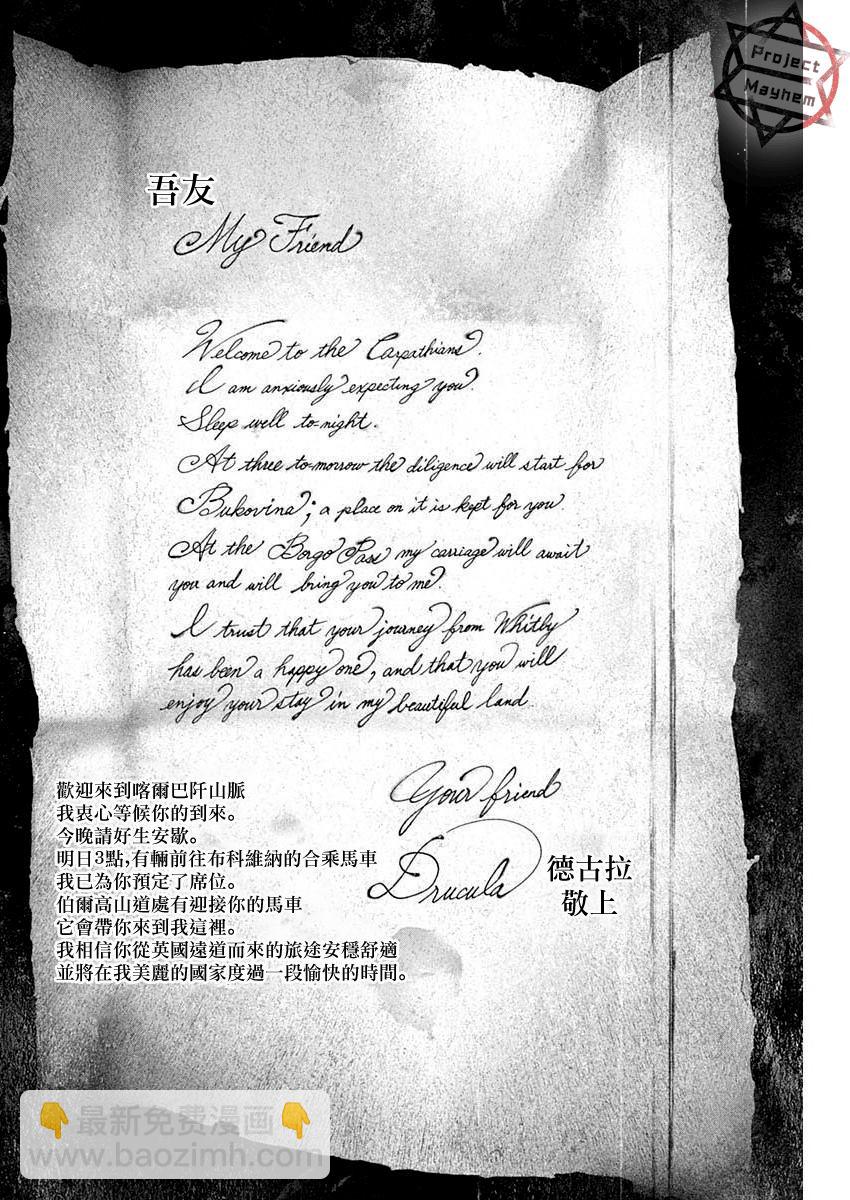 Project
Mayhem
吾友
My Friend
Welcome to the Carpathians.
I am anxiously expecting you.
Sleep well to-night.
At three to-morrow the diligence will start for
Bukovina; a place on it is kept for you.
At the Borgo Pass my carriage will await
you and will bring you to me.
I trust that your journey from Whitby
has been a happy one, and that you will
enjoy your stay in my beautiful land.
Your friend
Drucula
德古拉
敬上
歡迎來到喀爾巴阡山脈
我衷心等候你的到來。
今晚請好生安歇。
明日3點,有輛前往布科維納的合乘馬車
我已為你預定了席位。
伯爾高山道處有迎接你的馬車
它會帶你來到我這裡。
我相信你從英國遠道而來的旅途安穩舒適
並將在我美麗的國家度過一段愉快的時間。
👇最新免费漫画👇
www.baozimh.com